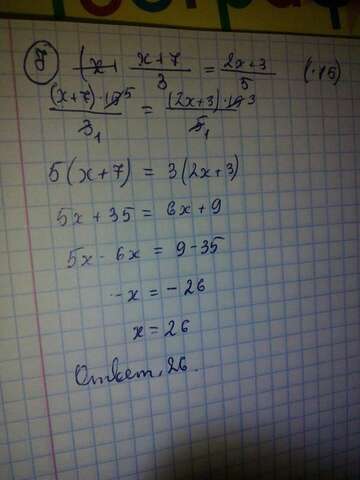 ж) x+7/3 = 2x+3/5 (·15)
(x+7)·15 5/3 1 = (2x+3)·15 3/5 1
5(x+7) = 3(2x+3)
5x+35 = 6x+9
5x-6x = 9-35
-x = -26
x = 26
Ответ, 26.